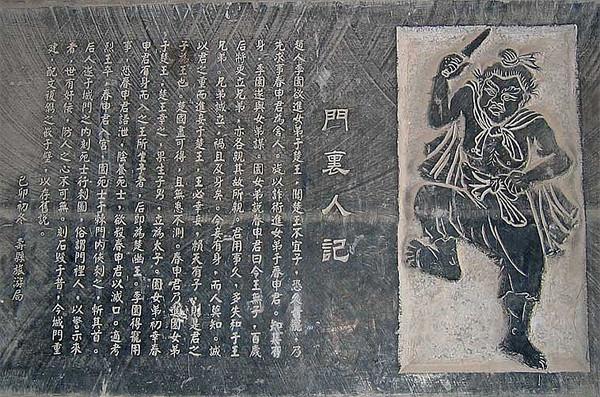 門裏人記
趙人李園欲進女弟于楚王，聞楚王不宜子，恐久無寵，乃
先求事春申君為舍人。旋以詐術進女弟于春申君。知其有
身，李園遂與女弟謀。園女弟說春申君曰今王無子，百歲
后將更立兄弟，亦各親其故所親。君用事久，多失礼于王
兄弟，兄弟誠立，禍且及身矣。今妾有身，而人莫知。誠
以君之重而進妾于楚王，王必幸妾，賴天有子，則是君之
子為王也，楚國盡可得，且無患不測。春申君乃進園女弟
于楚王，楚王幸之，果生子男，立為太子。園女弟初幸春
申君有身而入之王所生子者，后即為楚幽王。李園得寵用
事，恐春申君語泄，陰養死士，欲殺春申君以滅口。適考
烈王卒，春申君入宮，園死士于棘門內俠刺之，斬其首。
后人遂于城門之內刻死士行刺圖，俗謂門裡人，以警示來
者，世有奸佞，防人之心不可無。刻石毀于昔，今城門重
建，配文複鎸之嵌于壁，以存舊說。
己卯初冬 壽縣旅游局